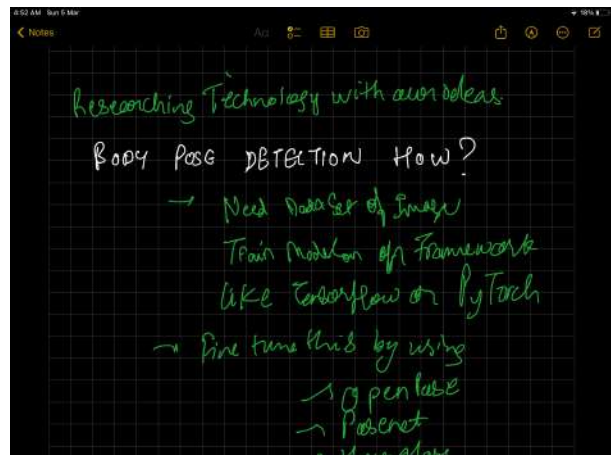 4:52 AM Sun 5 Mar
18%
Notes
Aa
Researching Technology with our ideas.
BODY POSE DETECTION HOW?
→ Need DataSet of Image
Train Model on Framework
like Tensorflow or PyTorch
→ Fine tune this by using
→ OpenPose
→ Posenet